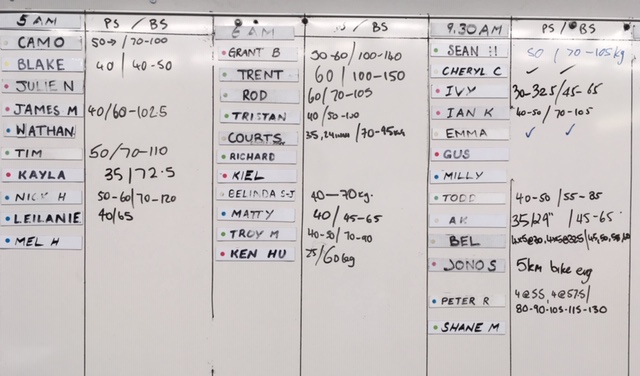 5 AM PS / BS
CAMO 50→ / 70-100
BLAKE 40 / 40-50
JULIE N
JAMES M 40/60-102.5
WATHAN
TIM 50/70-110
KAYLA 35/72.5
NICK H 50-60/70-120
LEILANIE 40/65
MEL H
6 AM PS / BS
GRANT B 50-60/100-140
TRENT 60 / 100-150
ROD 60/70-105
TRISTAN 40/50-100
COURTS 35, /70-95kg
RICHARD
KIEL
BELINDA S-J 40-70kg.
MATTY 40/ 45-65
TROY M 40-50/ 70-90
KEN HU 25/60kg
9.30 AM PS / BS
SEAN !! 50 / 70-105kg
CHERYL C ✓ ✓
IVY 30-32.5/45-65
IAN K 40-50/ 70-105
EMMA ✓ ✓
GUS
MILLY
TODD 40-50 /55-85
35/24" / 45-65
BEL
JONO S 5km bike erg
PETER R 4@55, 4@57.5/
80-90-105-115-130
SHANE M